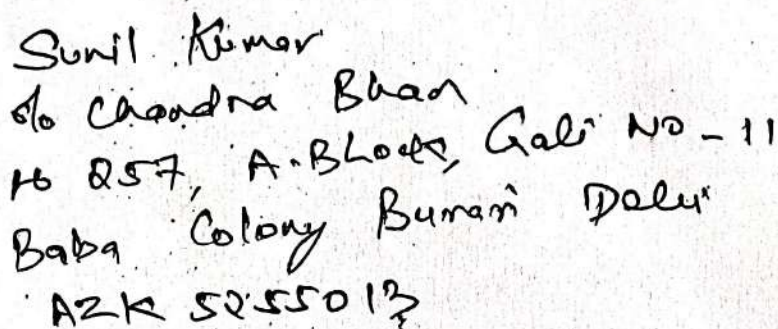 Sunil Kumar
S/o Chandra Bhan
Ho 257, A-Block, Gali No - 11
Baba Colony Burari Delhi
AZK 5255013